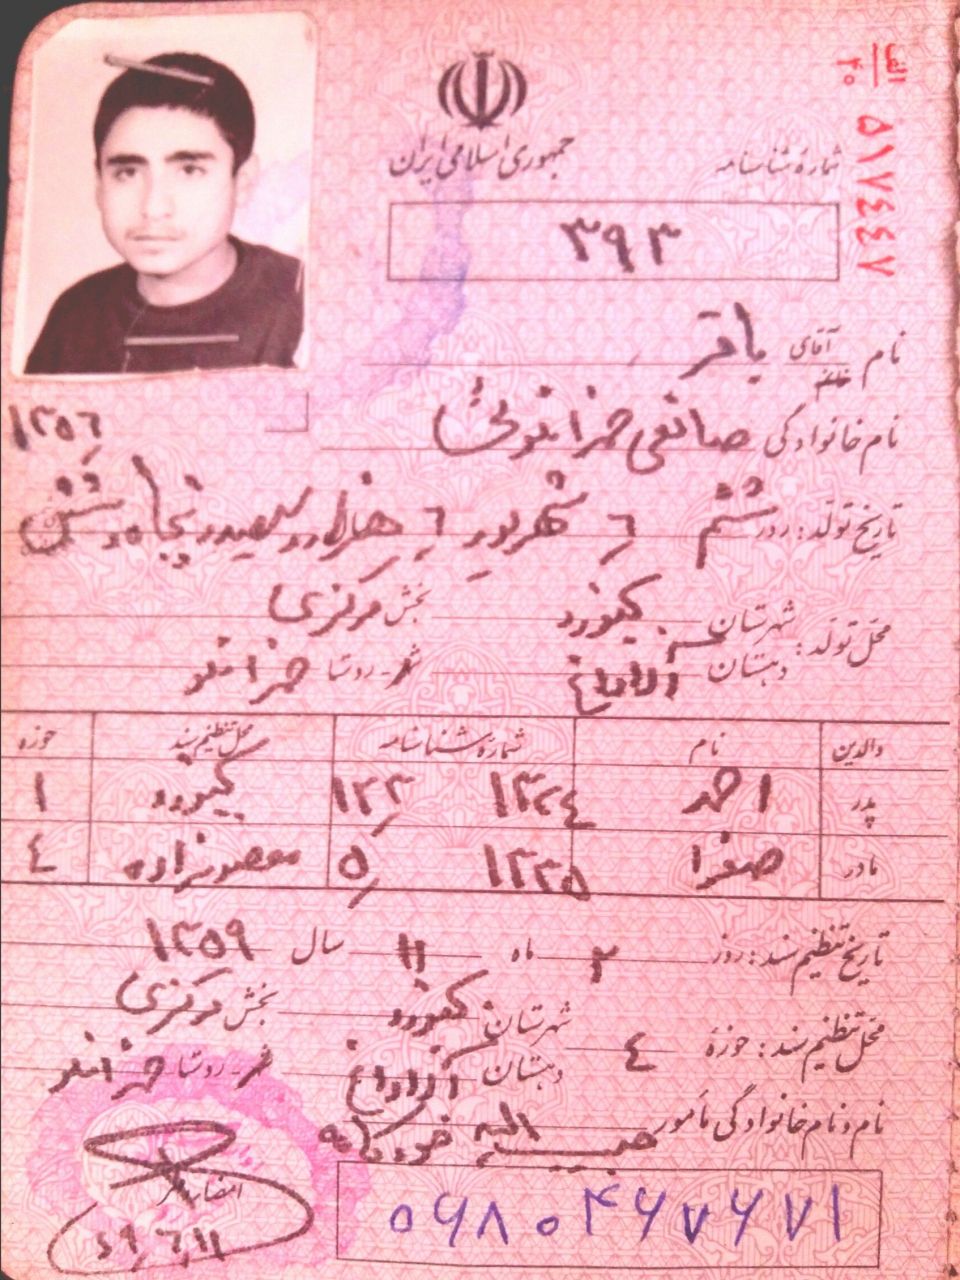 الف
۲۰
۵۱۷۴۴۷
جمهوری اسلامی ایران
شمارهٔ شناسنامه
۳۹۳
نام آقای خانم باقر
نام خانوادگی صانعی
۱۳۵۶
تاریخ تولّد: روز ششم ۶ شهریور ۶ هزار و سیصد و پنجاه و شش
محلّ تولّد: شهرستان بجنورد بخش مرکزی
دهستان آلاداغ شهر - روستا
والدین نام شمارهٔ شناسنامه محلّ تنظیم سند حوزه
پدر احمد ۱۳۲۴ ۱۲۳ بجنورد ۱
مادر صغرا ۱۳۳۵ ۵ ۴
تاریخ تنظیم سند: روز ۲ ماه ۱۱ سال ۱۳۵۹
محلّ تنظیم سند: حوزهٔ ۴ شهرستان بجنورد بخش مرکزی
دهستان آلاداغ شهر - روستا
نام و نام خانوادگی مأمور حبیب الله
امضاء و مهر
۰۶۸۰۴۶۷۶۷۱